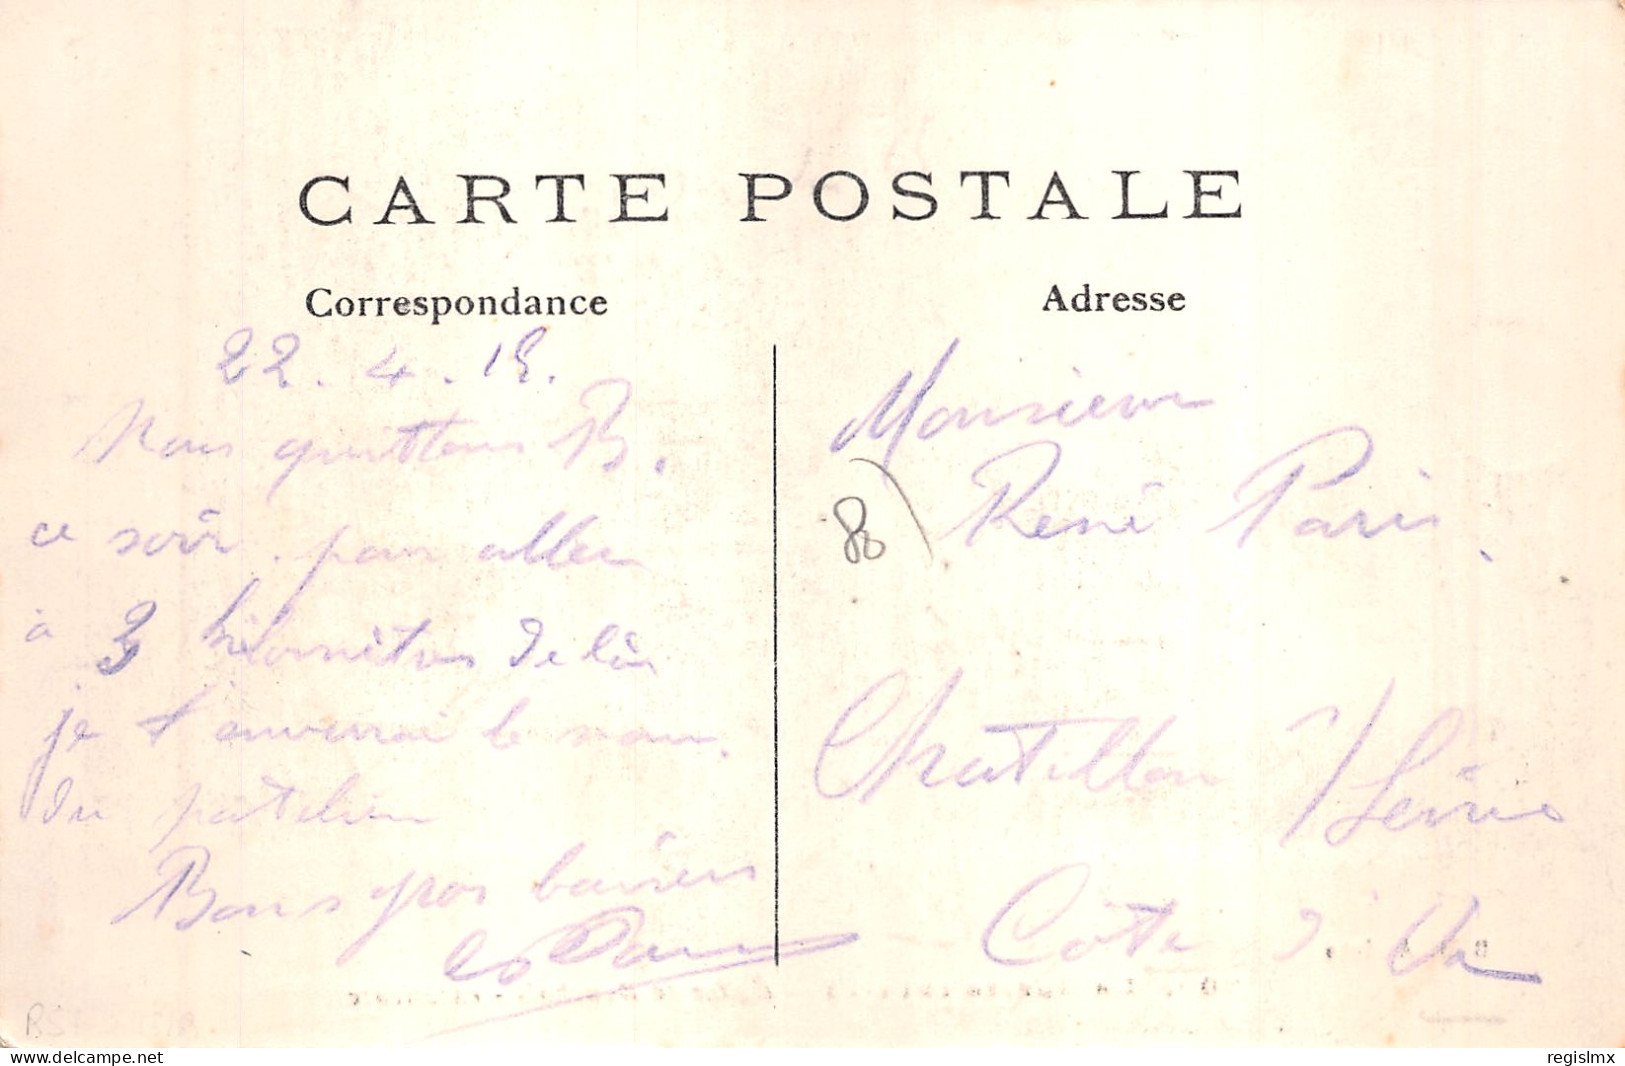 CARTE POSTALE
Correspondance
Adresse
22.4.18.
Nous quittons B.
ce soir pour aller
à 3 kilomètres de là
je t'enverrai le nom
du patelin
Bons gros baisers
Monsieur
René Paris
Chatillon s/Seine
Côte d'Or
80
www.delcampe.net
regislmx